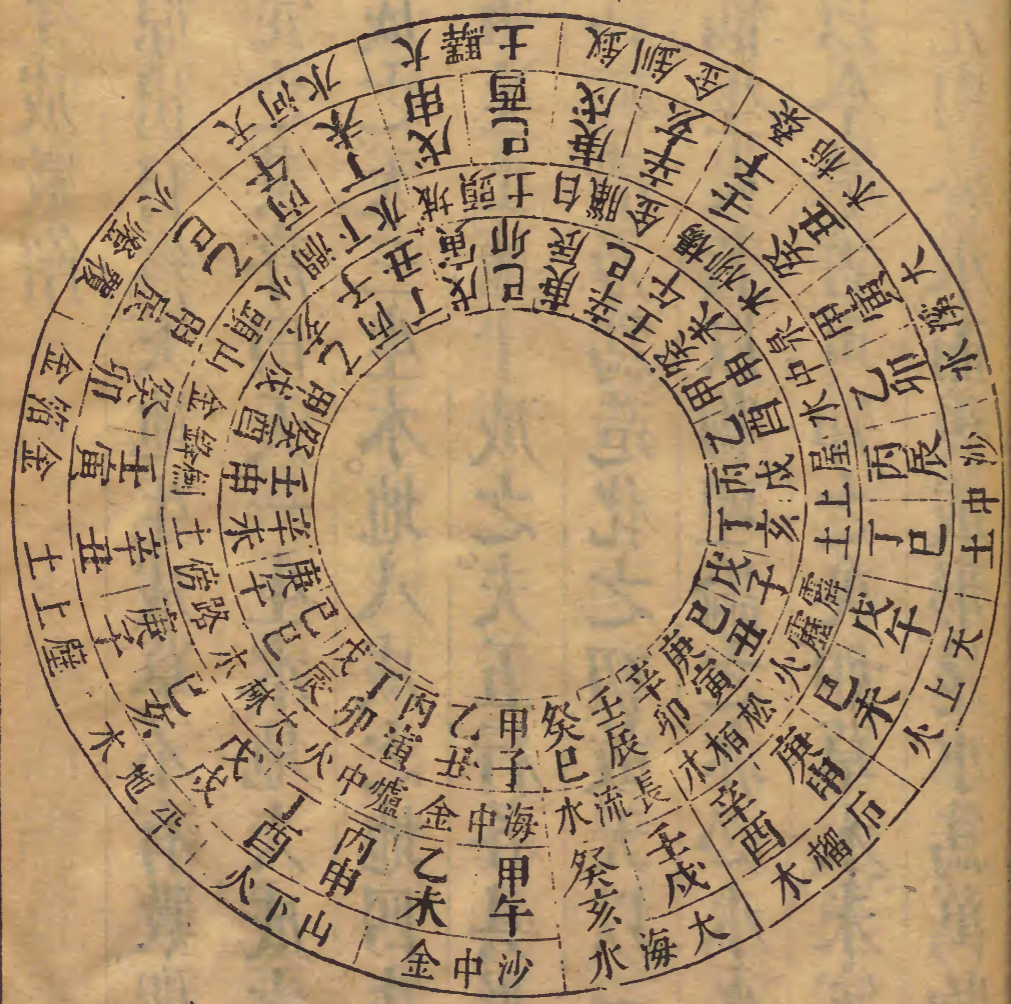 甲子 乙丑 丙寅 丁卯 戊辰 己巳 庚午 辛未 壬申 癸酉 甲戌 乙亥 丙子 丁丑 戊寅 己卯 庚辰 辛巳 壬午 癸未 甲申 乙酉 丙戌 丁亥 戊子 己丑 庚寅 辛卯 壬辰 癸巳
海中金 爐中火 大林木 路傍土 劍鋒金 山頭火 澗下水 城頭土 白臘金 楊柳木 泉中水 屋上土 霹靂火 松栢木 長流水
甲午 乙未 丙申 丁酉 戊戌 己亥 庚子 辛丑 壬寅 癸卯 甲辰 乙巳 丙午 丁未 戊申 己酉 庚戌 辛亥 壬子 癸丑 甲寅 乙卯 丙辰 丁巳 戊午 己未 庚申 辛酉 壬戌 癸亥
沙中金 山下火 平地木 壁上土 金箔金 覆燈火 天河水 大驛土 釵釧金 桑柘木 大溪水 沙中土 天上火 石榴木 大海水